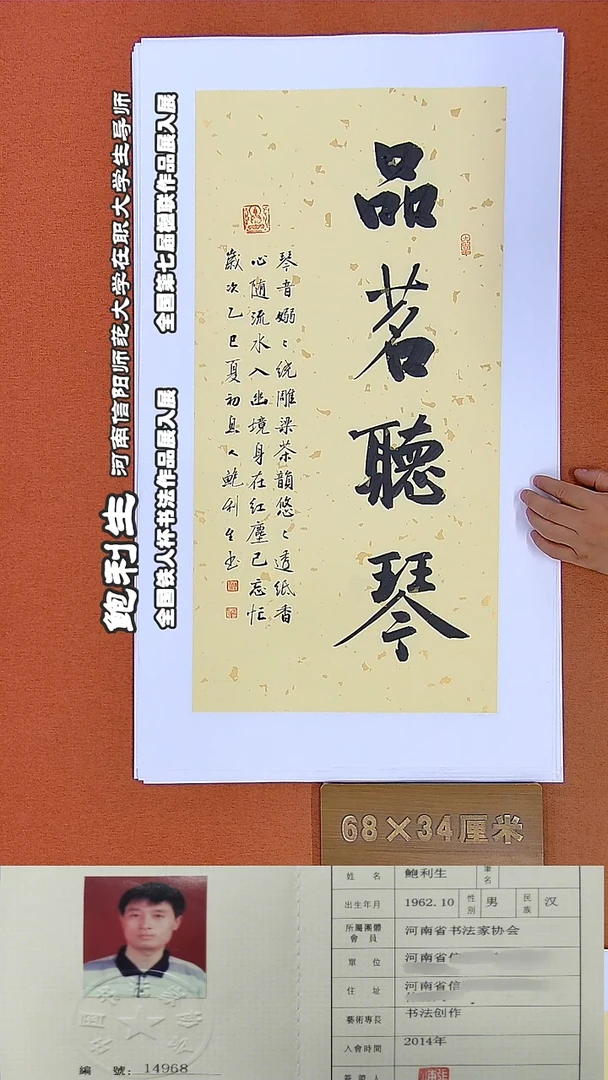 品茗聽琴
琴音嫋〻绕雕梁茶韻悠〻透纸香
心随流水入幽境身在红塵已忘忙
歲次乙巳夏初息人鲍利生书
鲍利生
河南信阳师范大学在职大学生导师
全国铁人杯书法作品展入展
全国第七届楹联作品展入展
68×34厘米
編 號: 14968
姓 名 鲍利生 筆名
出生年月 1962.10 性別 男 民族 汉
所屬團體會員 河南省书法家协会
單 位 河南省信
住 址 河南省信
藝術專長 书法创作
入會時間 2014年
簽證人